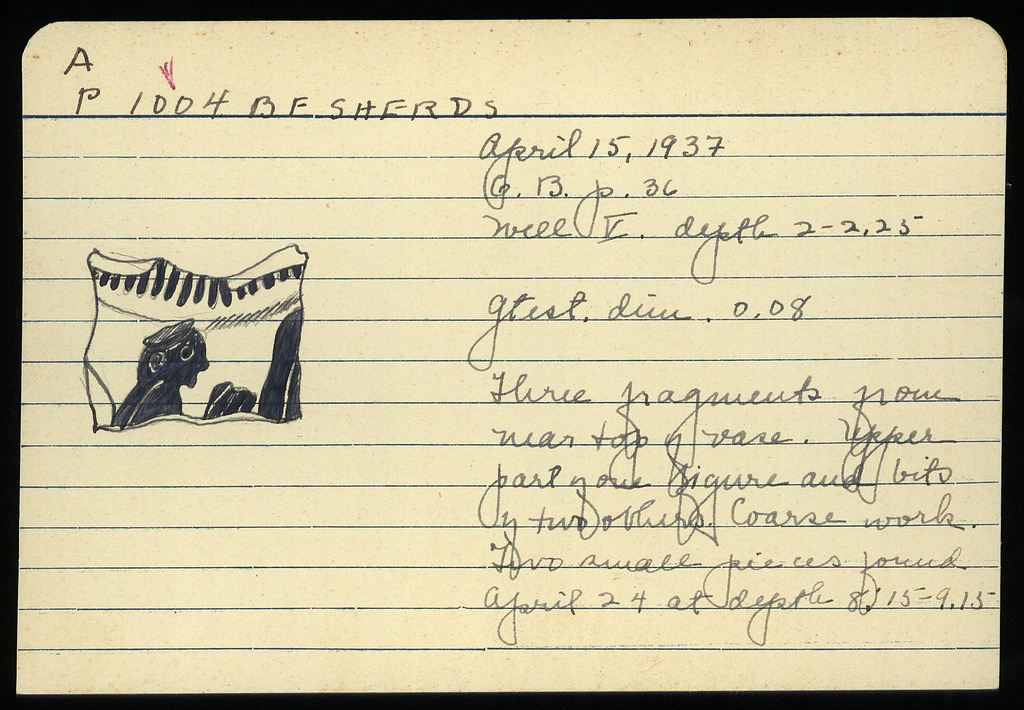 A
P 1004 BF SHERDS
April 15, 1937
G. B. p. 36
Well V. depth 2-2.25
Gtest. dim. 0.08
Three fragments from
near top of vase. Upper
part of one figure and bits
of two others. Coarse work.
Two small pieces found
April 24 at depth 8.15-9.15